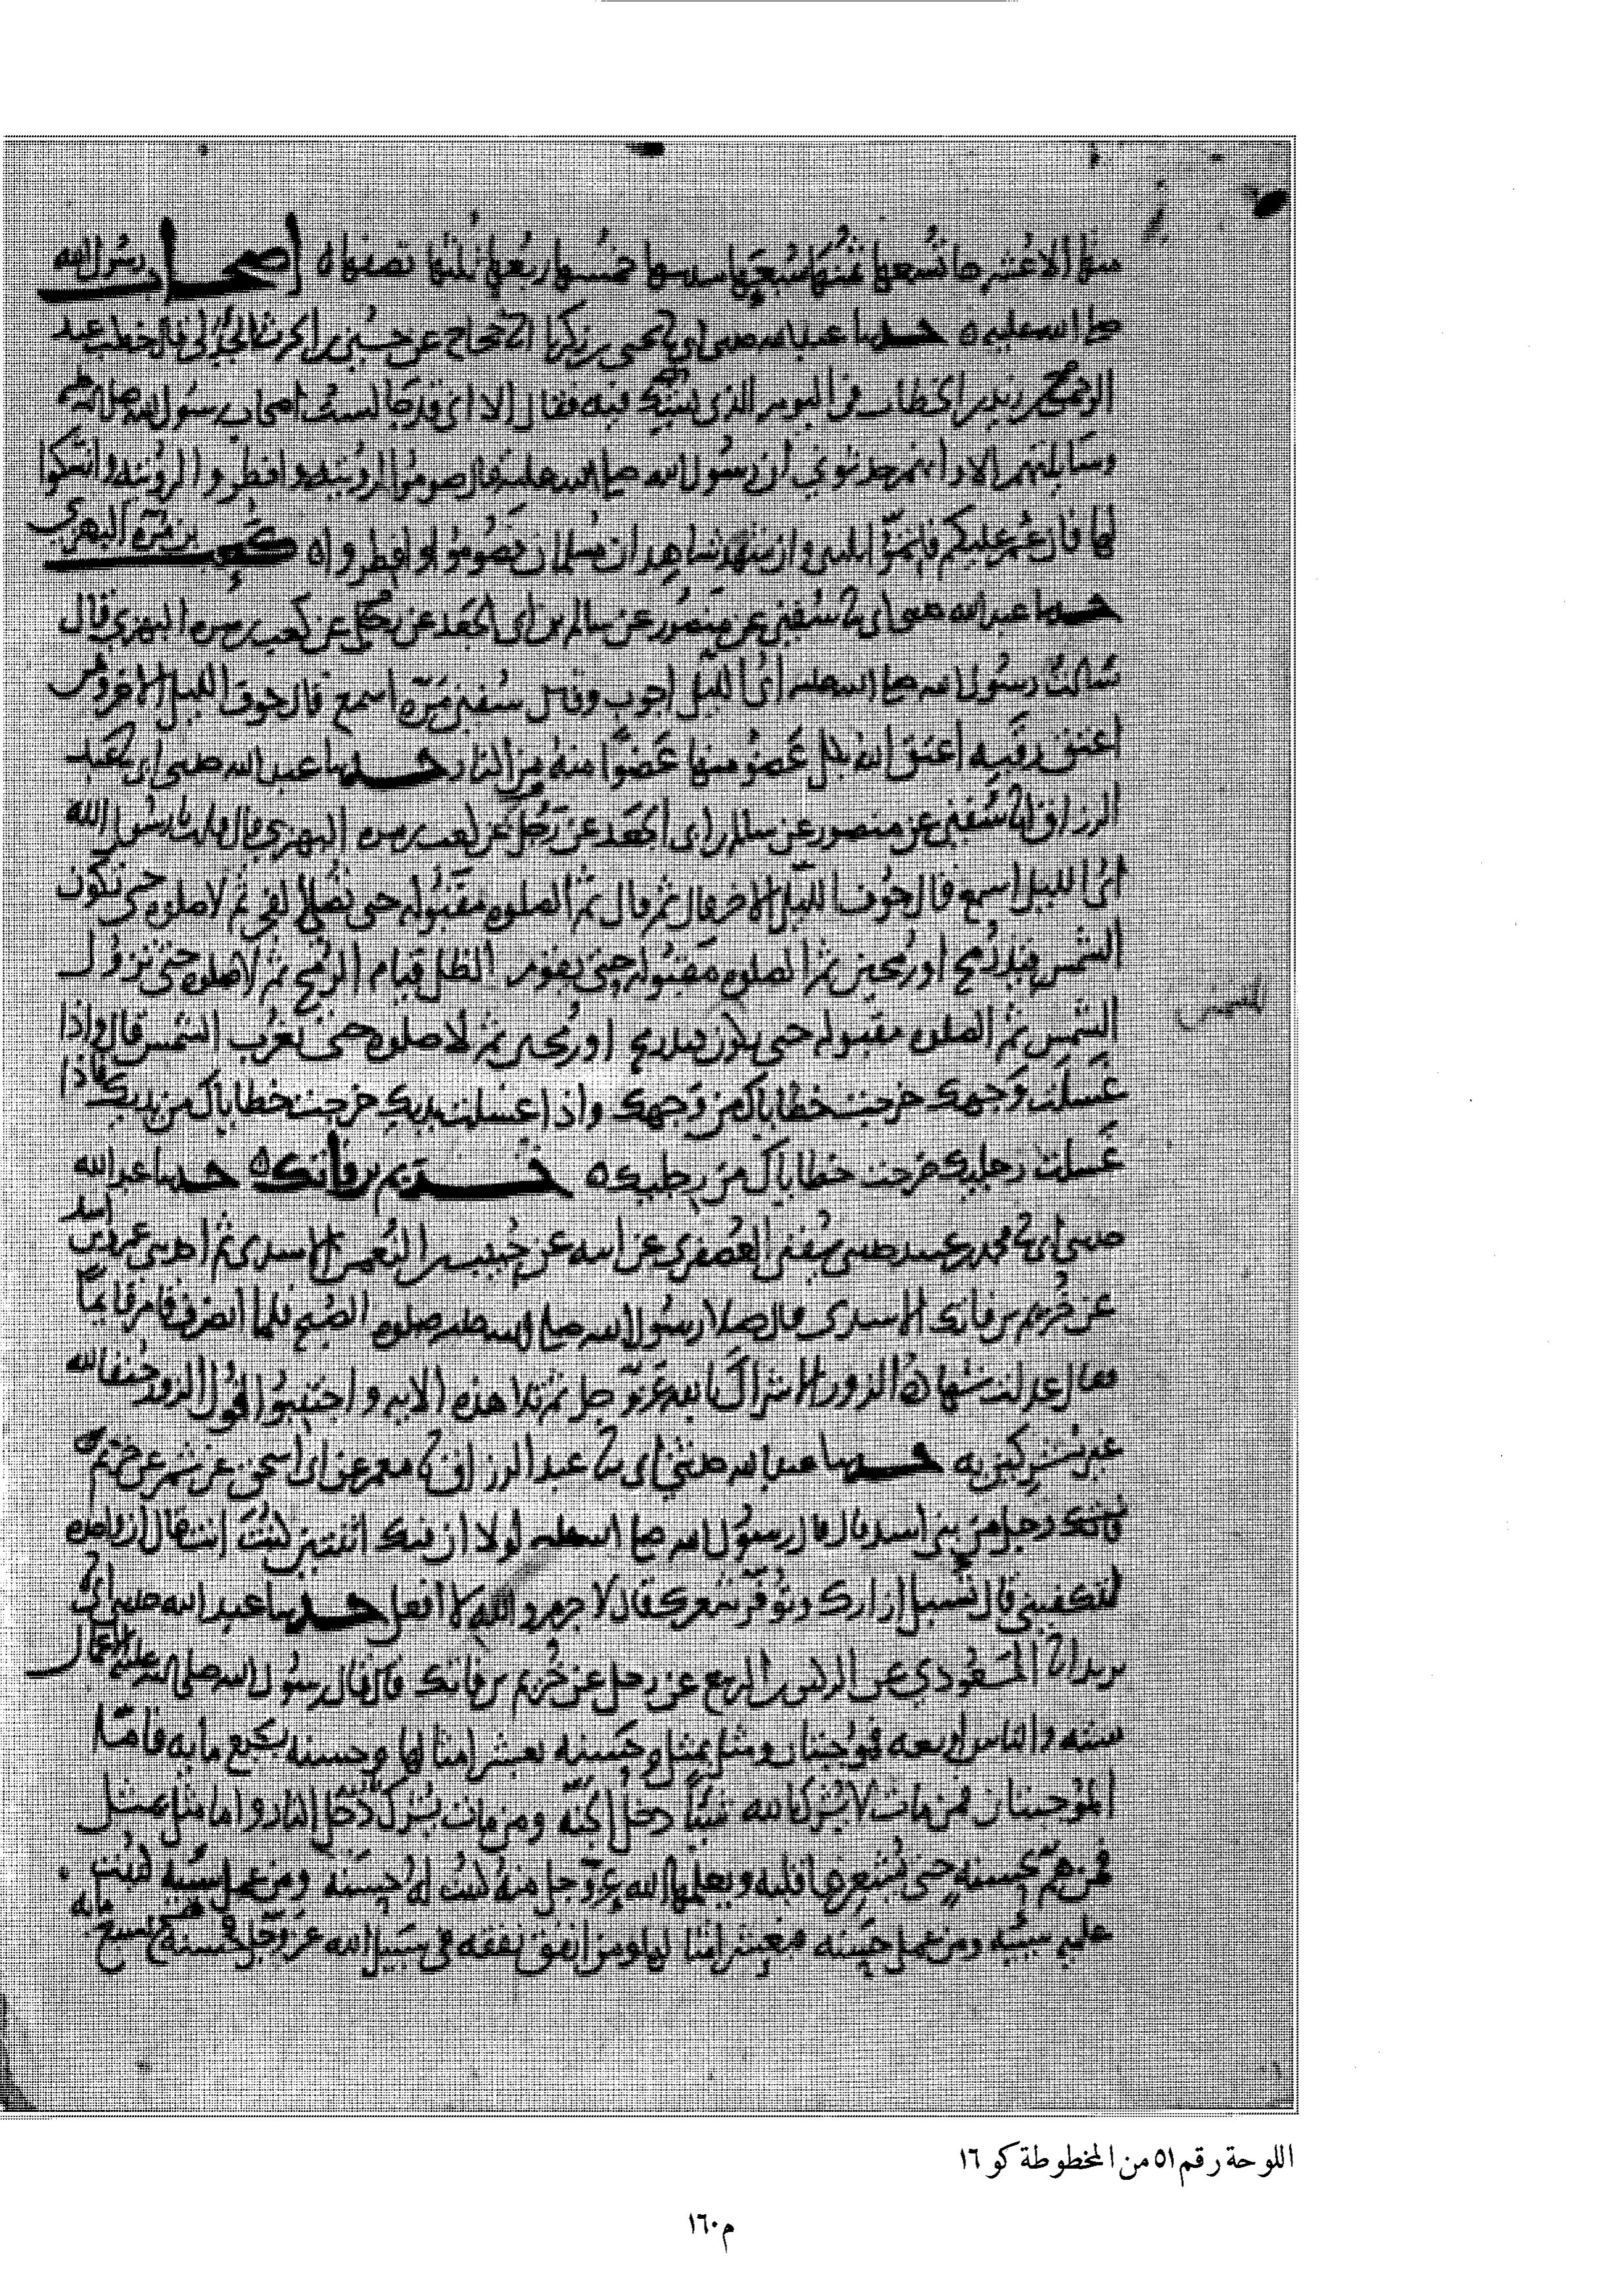 منها الا عشرها تسعها ثمنها سبعها سدسها خمسها ربعها ثلثها نصفها ه اصحاب رسول الله
صلى الله عليه ه حدثنا عبد الله حدثني ابي ثنا يحيى بن زكريا انا حجاج عن حسين بن الحرث الجدلي قال خطب عبد
الرحمن بن زيد بن الخطاب في اليوم الذي يشك فيه فقال الا اني قد جالست اصحاب رسول الله صلى الله عليه
وسايلتهم الا وانهم حدثوني ان رسول الله صلى الله عليه قال صوموا لرؤيته وافطروا لرؤيته وانسكوا
لها فان غم عليكم فاتموا ثلثين وان شهد شاهدان مسلمان فصوموا وافطروا ه كعب بن مرة البهزي
حدثنا عبد الله حدثني ابي ثنا سفين عن منصور عن سالم بن ابي الجعد عن رجل عن كعب بن مره البهزي قال
سالت رسول الله صلى الله عليه اي الليل اجوب وقال سفين مرة اسمع قال جوف الليل الاخر ومن
اعتق رقبه اعتق الله بكل عضو منها عضوا منه من النار حدثنا عبد الله حدثني ابي ثنا عبد
الرزاق انا سفين عن منصور عن سالم بن ابي الجعد عن رجل عن كعب بن مره البهزي قال قلت يا رسول الله
اي الليل اسمع قال جوف الليل الاخر قال ثم قال ثم الصلوه مقبوله حتى تصلي الفجر ثم لا صلوه حتى تكون
الشمس قيد رمح او رمحين ثم الصلوه مقبوله حتى يقوم الظل قيام الرمح ثم لا صلوه حتى تزول
الشمس ثم الصلوه مقبوله حتى يكون قيد رمح او رمحين ثم لا صلوه حتى تغرب الشمس قال واذا
غسلت وجهك خرجت خطاياك من وجهك واذا غسلت يديك خرجت خطاياك من يديك فاذا
غسلت رجليك خرجت خطاياك من رجليك ه خريم بن فاتك ه حدثنا عبد الله
حدثني ابي ثنا محمد بن عبيد حدثني سفين العصفري عن ابيه عن حبيب بن النعمن الاسدي ثم احد بني عمرو بن اسد
عن خريم بن فاتك الاسدي قال صلا رسول الله صلى الله عليه صلوه الصبح فلما انصرف قام قايما
فقال عدلت شهادة الزور الاشراك بالله عز وجل ثم تلا هذه الايه واجتنبوا قول الزور حنفا لله
غير مشركين به حدثنا عبد الله حدثني ابي ثنا عبد الرزاق انا معمر عن ابي اسحق عن شمر عن خريم بن
فاتك رجل من بني اسد قال قال رسول الله صلى الله عليه لولا ان فيك اثنتين كنت انت قال ان واحده
لتكفيني قال تسبل ازارك وتوفر شعرك قال لا جرم والله لا افعل حدثنا عبد الله حدثني ابي ثنا
يزيد انا المسعودي عن الركين بن الربيع عن رجل عن خريم بن فاتك قال قال رسول الله صلى الله عليه الاعمال
سته والناس اربعه فموجبتان ومثل بمثل وحسنه بعشر امثالها وحسنه بسبع مايه فاما
الموجبتان فمن مات لا يشرك بالله شيئا دخل الجنه ومن مات يشرك دخل النار واما مثل بمثل
فمن هم بحسنه حتى يشعرها قلبه ويعلمها الله عز وجل منه كتبت له حسنه ومن عمل سيئه كتبت
عليه سيئه ومن عمل حسنه فبعشر امثالها ومن انفق نفقه في سبيل الله عز وجل فحسنه بسبع مايه
الشمس
اللوحة رقم ٥١ من المخطوطة كو ١٦
م١٦٠